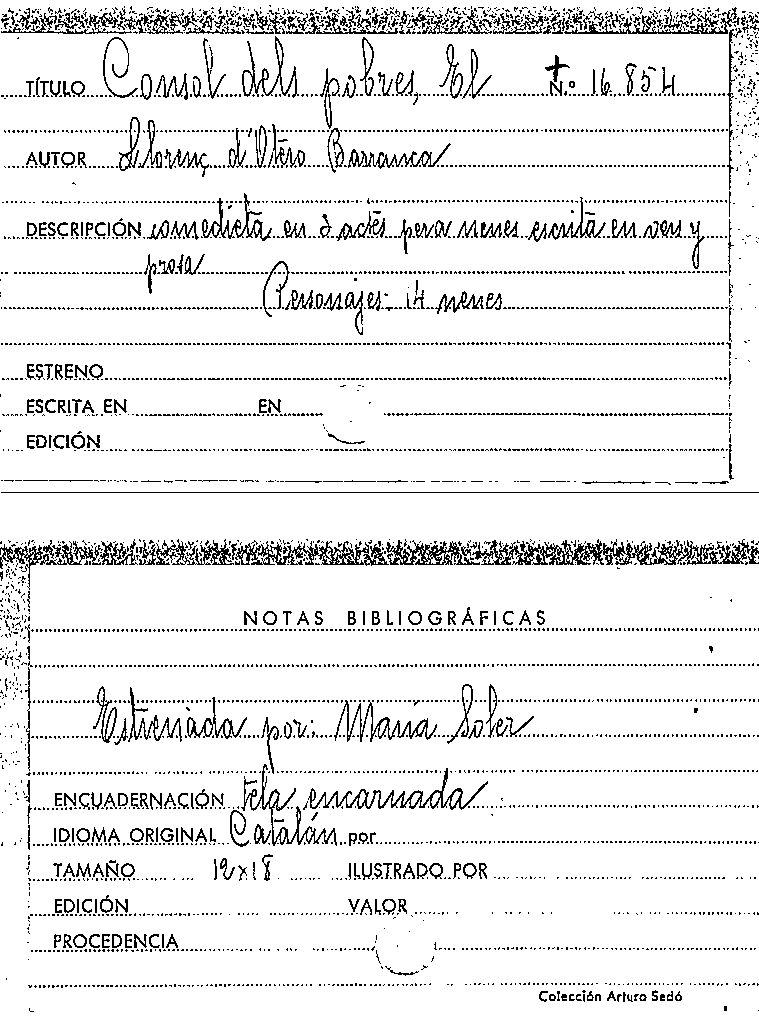 TÍTULO Consol dels pobres, El N.º 16.854
AUTOR Llorenç d'Otero Barranca
DESCRIPCIÓN comedieta en 2 actes pera nenes escrita en vers y
prosa
Personajes: 14 nenes
ESTRENO
ESCRITA EN EN
EDICIÓN
NOTAS BIBLIOGRÁFICAS
Estrenada por: María Soler
ENCUADERNACIÓN tela encarnada
IDIOMA ORIGINAL Catalán por
TAMAÑO 12x18 ILUSTRADO POR
EDICIÓN VALOR
PROCEDENCIA
Colección Arturo Sedó